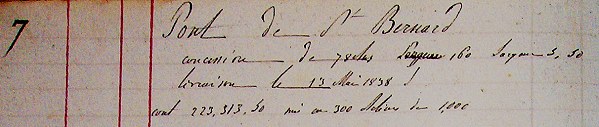 7 Pont de St Bernard
concession de 78 ans Longueur 160 largeur 3,50
livraison le 13 Mai 1838
cout 223,313,50 mis en 300 Actions de 1,000